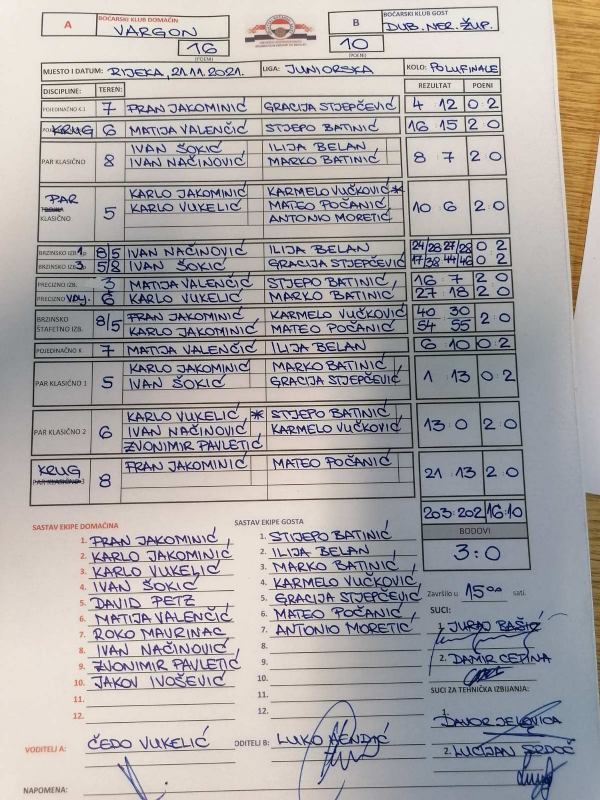 A BOĆARSKI KLUB DOMAĆIN B BOĆARSKI KLUB GOST
VARGON DUB. NER. ŽUP.
16 10
(POENI) (POENI)
MJESTO I DATUM: RIJEKA, 21.11.2021. LIGA: JUNIORSKA KOLO: POLUFINALE
DISCIPLINE: TEREN: REZULTAT POENI
POJEDINAČNO K.1 7 FRAN JAKOMINIĆ GRACIJA STJEPČEVIĆ 4 12 0 2
KRUG 6 MATIJA VALENČIĆ STJEPO BATINIĆ 16 15 2 0
PAR KLASIČNO 8 IVAN ŠOKIĆ ILIJA BELAN 8 7 2 0
IVAN NAČINOVIĆ MARKO BATINIĆ
PAR KLASIČNO 5 KARLO JAKOMINIĆ KARMELO VUČKOVIĆ * 10 6 2 0
KARLO VUKELIĆ MATEO POČANIĆ
ANTONIO MORETIĆ
BRZINSKO IZB. 1. 8/5 IVAN NAČINOVIĆ ILIJA BELAN 24/28 27/28 0 2
BRZINSKO IZB. 3. 5/8 IVAN ŠOKIĆ GRACIJA STJEPČEVIĆ 17/38 44/46 0 2
PRECIZNO IZB. 3 MATIJA VALENČIĆ STJEPO BATINIĆ 16 : 7 2 0
PRECIZNO 6 KARLO VUKELIĆ MARKO BATINIĆ 27 : 18 2 0
BRZINSKO ŠTAFETNO IZB. 8/5 FRAN JAKOMINIĆ KARMELO VUČKOVIĆ 40 30 2 0
KARLO JAKOMINIĆ MATEO POČANIĆ 54 55
POJEDINAČNO K 7 MATIJA VALENČIĆ ILIJA BELAN 6 10 0 2
PAR KLASIČNO 1 5 KARLO JAKOMINIĆ MARKO BATINIĆ 1 13 0 2
IVAN ŠOKIĆ GRACIJA STJEPČEVIĆ
PAR KLASIČNO 2 6 KARLO VUKELIĆ * STJEPO BATINIĆ 13 0 2 0
IVAN NAČINOVIĆ KARMELO VUČKOVIĆ
ZVONIMIR PAVLETIĆ
KRUG 8 FRAN JAKOMINIĆ MATEO POČANIĆ 21 13 2 0
PAR KLASIČNO 3
203:202 16:10
BODOVI
3:0
SASTAV EKIPE DOMAĆINA
1. FRAN JAKOMINIĆ
2. KARLO JAKOMINIĆ
3. KARLO VUKELIĆ
4. IVAN ŠOKIĆ
5. DAVID PETZ
6. MATIJA VALENČIĆ
7. ROKO MAURINAC
8. IVAN NAČINOVIĆ
9. ZVONIMIR PAVLETIĆ
10. JAKOV IVOŠEVIĆ
11.
12.
SASTAV EKIPE GOSTA
1. STIJEPO BATINIĆ
2. ILIJA BELAN
3. MARKO BATINIĆ
4. KARMELO VUČKOVIĆ
5. GRACIJA STJEPČEVIĆ
6. MATEO POČANIĆ
7. ANTONIO MORETIĆ
8.
9.
10.
11.
12.
Završilo u 15 00 sati.
SUCI:
1. JURAJ BAŠIĆ
2. DAMIR CEPINA
SUCI ZA TEHNIČKA IZBIJANJA:
1. DAVOR JELOVICA
2. LUCIJAN SRDOČ
VODITELJ A: ČEDO VUKELIĆ
ODITELJ B: LUKO
NAPOMENA: